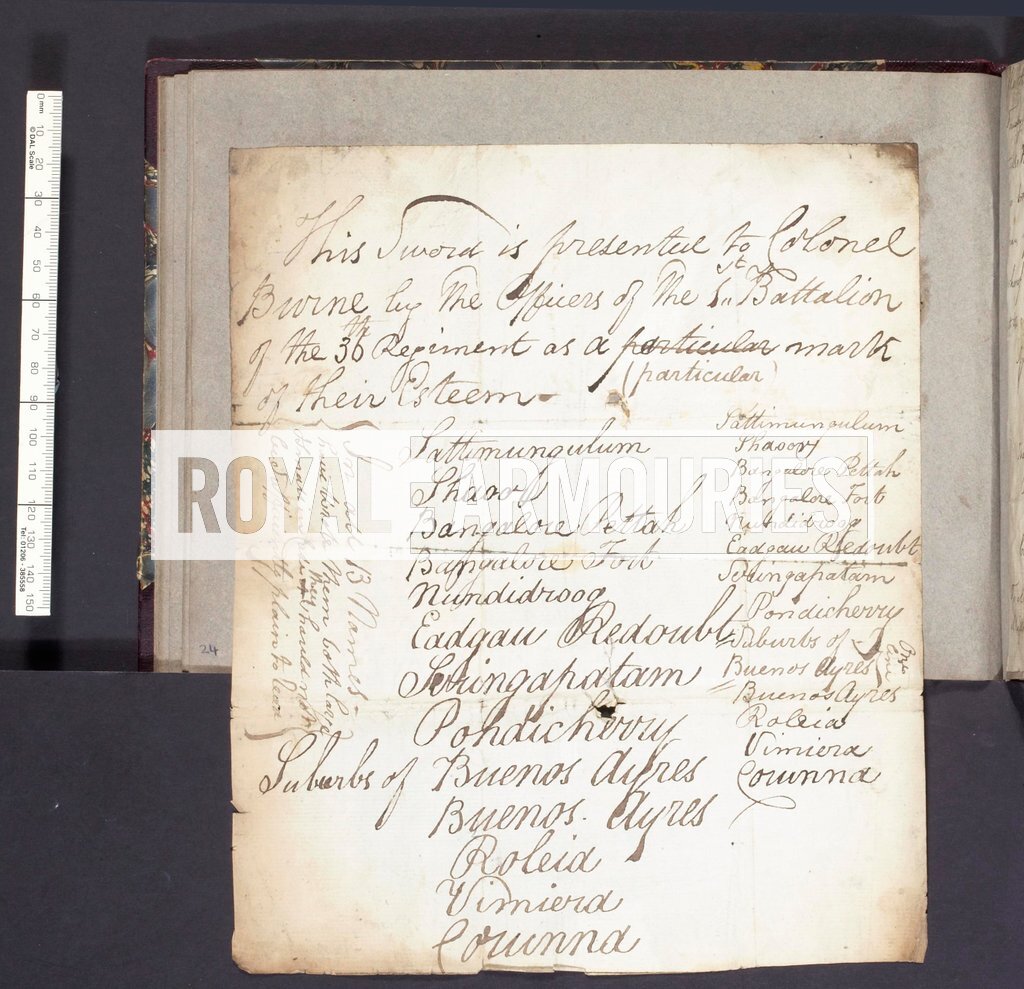 This Sword is presented to Colonel
Burne by the Officers of the 1st Battalion
of the 36th Regiment as a particular mark
(particular)
of their Esteem-
Sattimungulum
Sharoor
Bangalore Pettah
Bangalore Fort
Nundidroog
Eadgau Redoubt
Seringapatam
Pondicherry
Suburbs of Buenos Ayres
Buenos. Ayres
Roleia
Vimiera
Corunna
Sattimungulum
Shaoor
Bangalore Pettah
Bangalore Fort
Nundidroog
Eadgau Redoubt
Seringapatam
Pondicherry
Suburbs of
Buenos Ayres
One line
Buenos Ayres
Roleia
Vimiera
Corunna
13 Names-
them both
they should
plain to read
24
ROYAL ARMOURIES
0 mm 10 20 30 40 50 60 70 80 90 100 110 120 130 140 150
© DAL Scale
Tel: 01206 - 385558